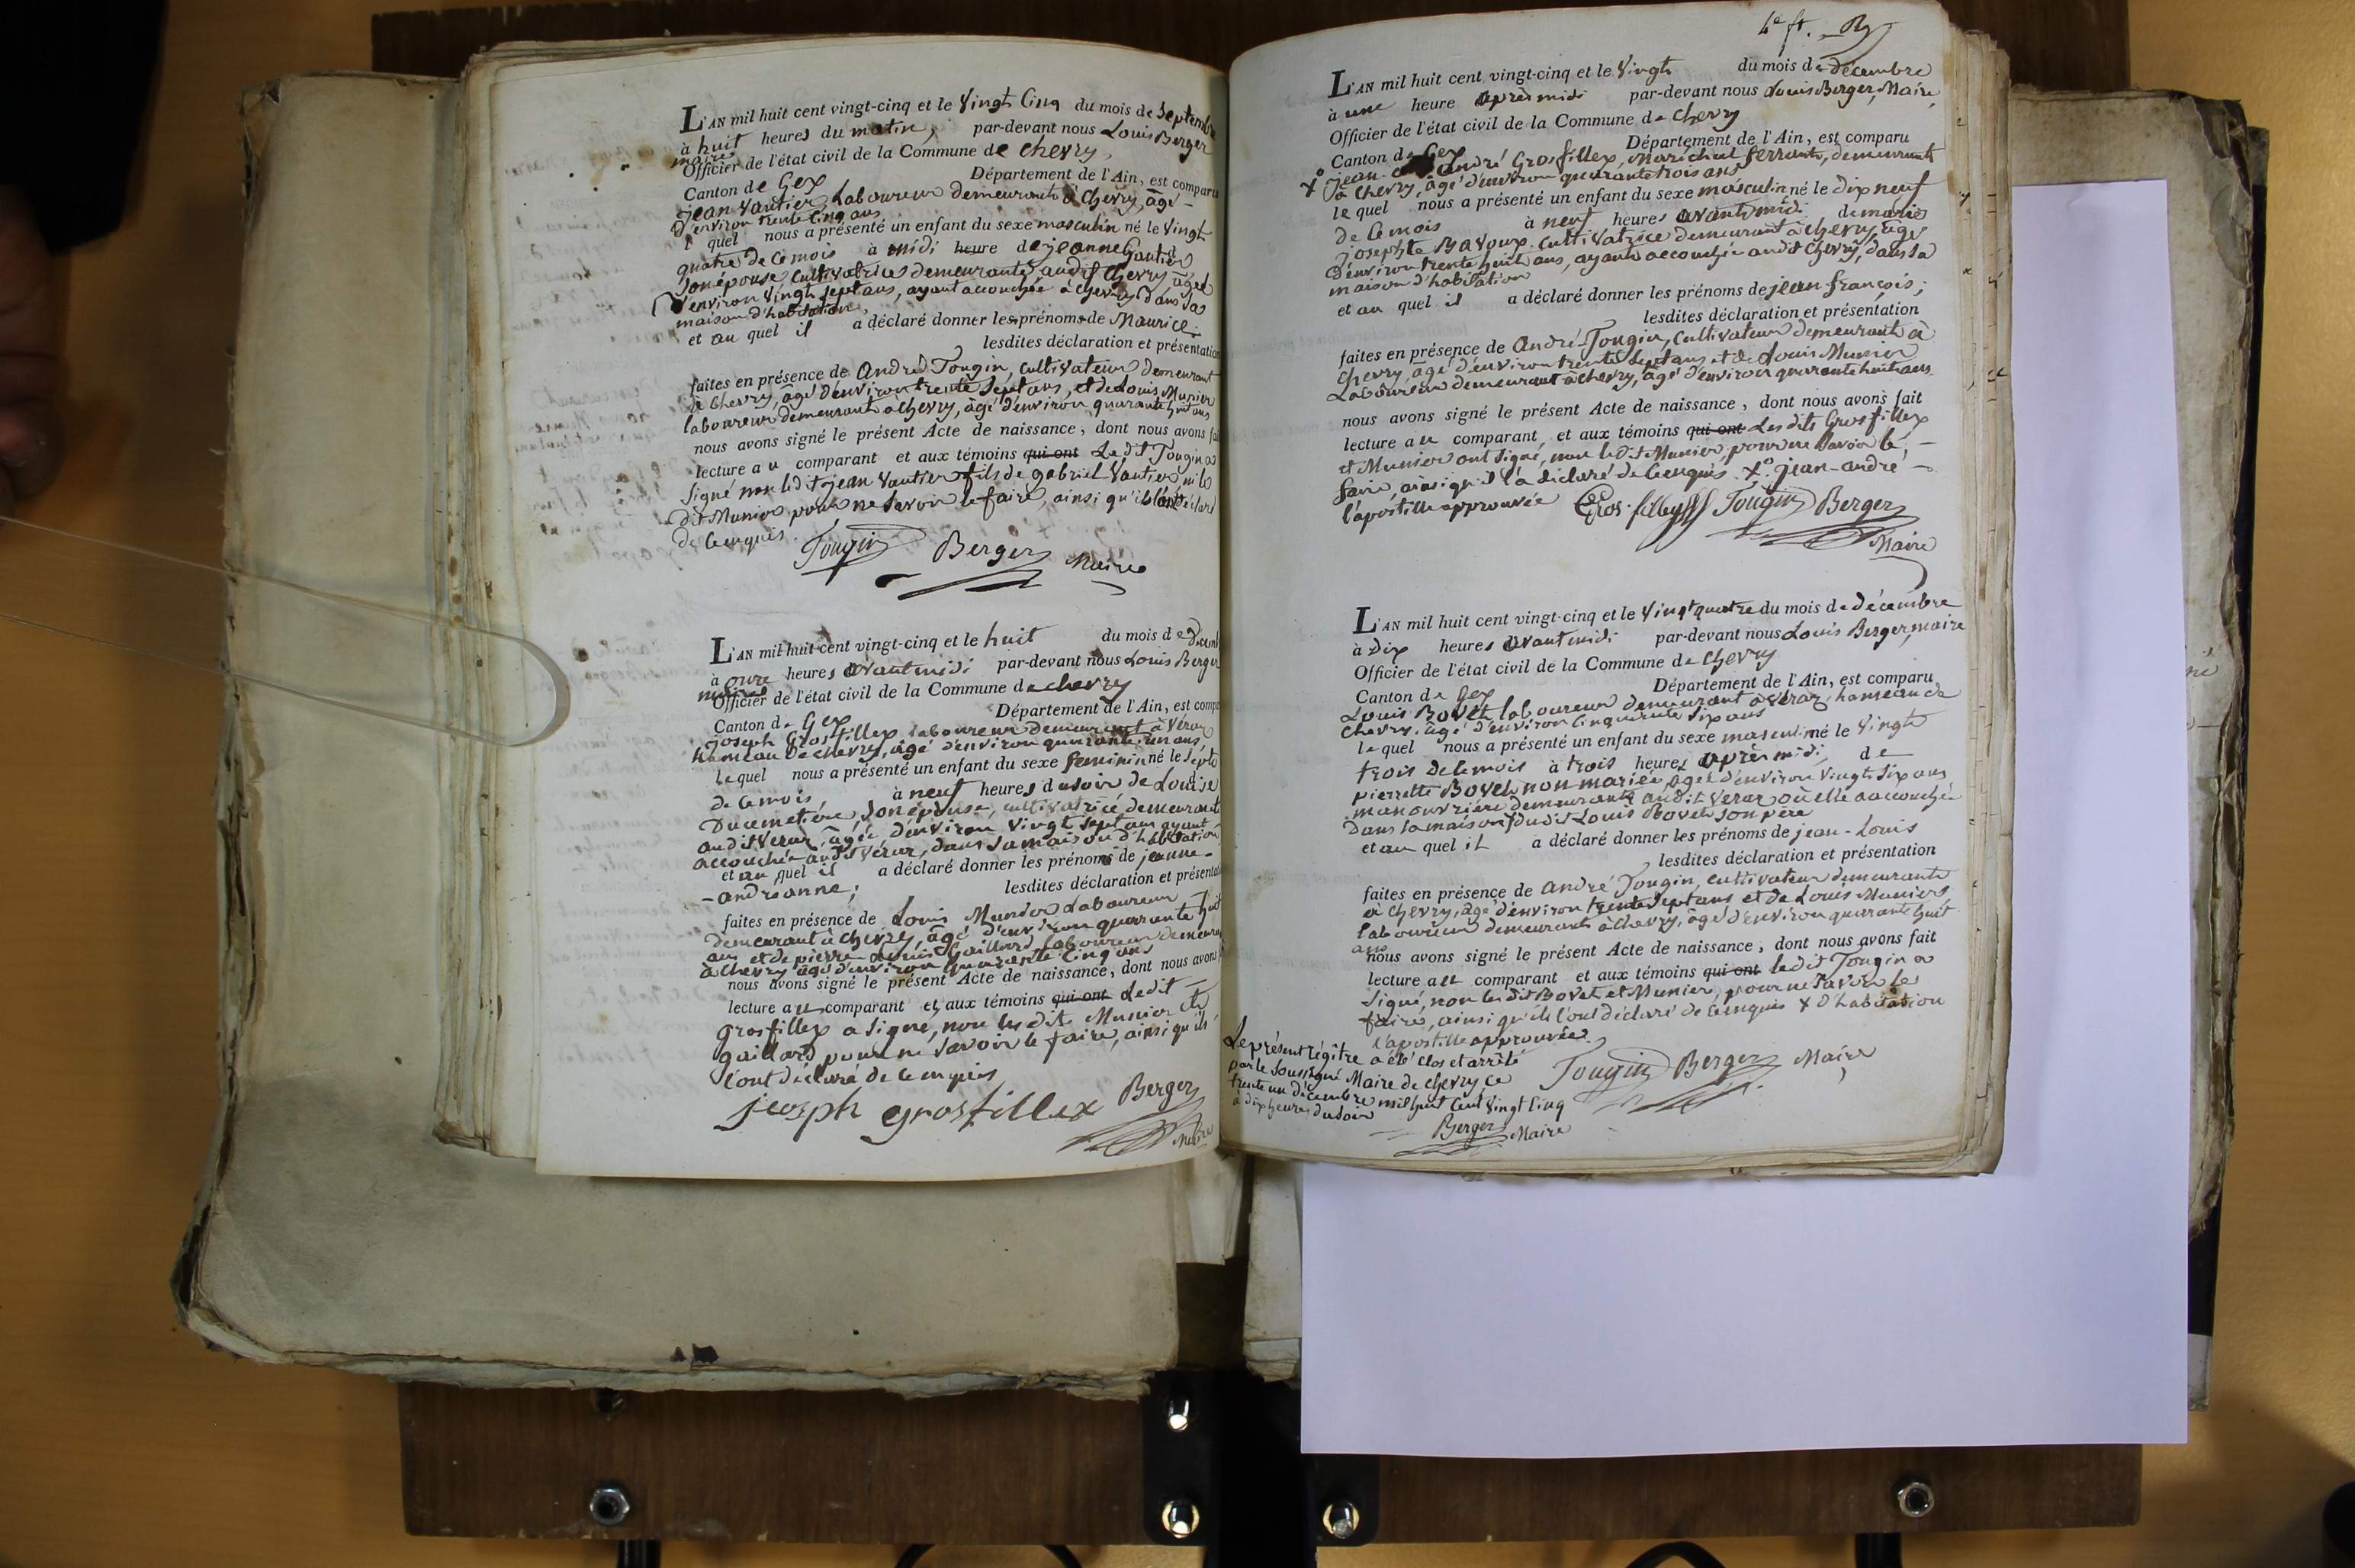 L'AN mil huit cent vingt-cinq et le Vingt Cinq du mois de Septembre
à huit heures du matin, par-devant nous Louis Berger
maire
Officier de l'état civil de la Commune de Chevry,
Canton de Gex Département de l'Ain, est comparu
jean Vautier, Laboureur demeurant à Chevry, âgé
d'environ trente Cinq ans
l quel nous a présenté un enfant du sexe masculin né le Vingt
quatre de Ce mois à midi heure de jeanne Gautier
Son épouse, Cultivatrice demeurante audit Chevry âgée
d'environ Vingt Sept ans, ayant accouchée à Chevry dans sa
maison d'habitation,
et au quel il a déclaré donner les prénoms de Maurice.
lesdites déclaration et présentation
faites en présence de André Tougin, Cultivateur demeurant
à Chevry, âgé d'environ trente Sept ans, et de Louis Munier
laboureur demeurant à Chevry, âgé d'environ quarante huit ans
nous avons signé le présent Acte de naissance, dont nous avons fait
lecture au comparant et aux témoins qui ont Ledit Tougin a
Signé non ledit jean Vautier fils de gabriel Vautier ni le
dit Munier pour ne Savoir le faire, ainsi qu'ils l'ont déclaré
de Ce enquis.
Tougin Berger Maire
L'AN mil huit cent vingt-cinq et le huit du mois de Décemb
à onze heures avant midi par-devant nous Louis Berger
maire
Officier de l'état civil de la Commune de chevry
Canton de Gex Département de l'Ain, est comp
joseph Grosfillex laboureur demeurant à Véraz
hameau de chevry, âgé d'environ quarante un ans,
Lequel nous a présenté un enfant du sexe feminin né le Sept
de Ce mois à neuf heures du soir de Louise
Ducimetière, Son épouse, cultivatrice demeurant
audit Veraz, âgée d'environ Vingt Sept ans ayant
accouchée audit Véraz, dans Sa maison d'habitation
et au quel il a déclaré donner les prénoms de jeanne-
-andréanne; lesdites déclaration et présentat
faites en présence de Louis Munier Laboureur
demeurant à Chevry, âgé d'environ quarante huit
ans et de pierre Louis Gaillard, laboureur demeurant
à Chevry âgé d'environ quarante Cinq ans
nous avons signé le présent Acte de naissance, dont nous avons
lecture au comparant et aux témoins qui ont Ledit
Grosfillex a Signé, non les dits Munier et
gaillard pour ne Savoir le faire, ainsi qu'ils
l'ont déclaré de Ce enquis
joseph grosfillex Berger
Maire
4e ft. B
L'AN mil huit cent vingt-cinq et le Vingt du mois de décembre
à une heure après midi par-devant nous Louis Berger, Maire,
Officier de l'état civil de la Commune de Chevry
Canton de Gex Département de l'Ain, est comparu
X° jean andré Grosfillex, Maréchal ferrant, demeurant
à Chevry, âgé d'environ quarante trois ans
le quel nous a présenté un enfant du sexe masculin né le dix neuf
de Ce mois à neuf heures avant midi de marie
josephte Bavoux Cultivatrice demeurant à Chevry, âgée
d'environ trente huit ans, ayant accouchée audit Chevry, dans sa
maison d'habitation
et au quel il a déclaré donner les prénoms de jean françois;
lesdites déclaration et présentation
faites en présence de André Tougin, Cultivateur demeurant à
Chevry, âgé d'environ trente Sept ans et de Louis Munier
Laboureur demeurant à Chevry, âgé d'environ quarante huit ans
nous avons signé le présent Acte de naissance, dont nous avons fait
lecture au comparant et aux témoins qui ont Les dits Grosfillex
et Munier ont Signé, non ledit Munier, pour ne Savoir le,
faire, ainsi qu'il l'a déclaré de Ce enquis. X° jean-andré
l'apostille approuvée Gros-fillex Tougin Berger
Maire
L'AN mil huit cent vingt-cinq et le Vingt quatre du mois de décembre
à Dix heures avant midi par-devant nous Louis Berger, maire
Officier de l'état civil de la Commune de Chevry
Canton de Gex Département de l'Ain, est comparu
Louis Bovet laboureur demeurant à Véraz, hameau de
Chevry, âgé d'environ Cinquante Six ans
le quel nous a présenté un enfant du sexe masculin né le Vingt
trois de Ce mois à trois heures après midi, de
pierrette Bovet, non mariée, âgée d'environ Vingt Six ans
manouvrière demeurante audit Veraz où elle a accouchée
Dans la maison X dudit Louis Bovet Son père
et au quel il a déclaré donner les prénoms de jean-Louis
lesdites déclaration et présentation
faites en présence de André Tougin, Cultivateur demeurante
à Chevry, âgé d'environ trente Sept ans et de Louis Munier
laboureur demeurante à Chevry, âgé d'environ quarante huit
ans
nous avons signé le présent Acte de naissance, dont nous avons fait
lecture au comparant et aux témoins qui ont ledit Tougin a
Signé, non les dit Bovet et Munier, pour ne Savoir le
faire, ainsi qu'ils l'ont déclaré de Ce enquis X d'habitation
l'apostille approuvée.
Tougin Berger Maire
Le présent régitre a été Clos et arrêté
par le Soussigné Maire de Chevry Ce
trente un décembre mil huit Cent Vingt Cinq
à dix heures du Soir
Berger Maire